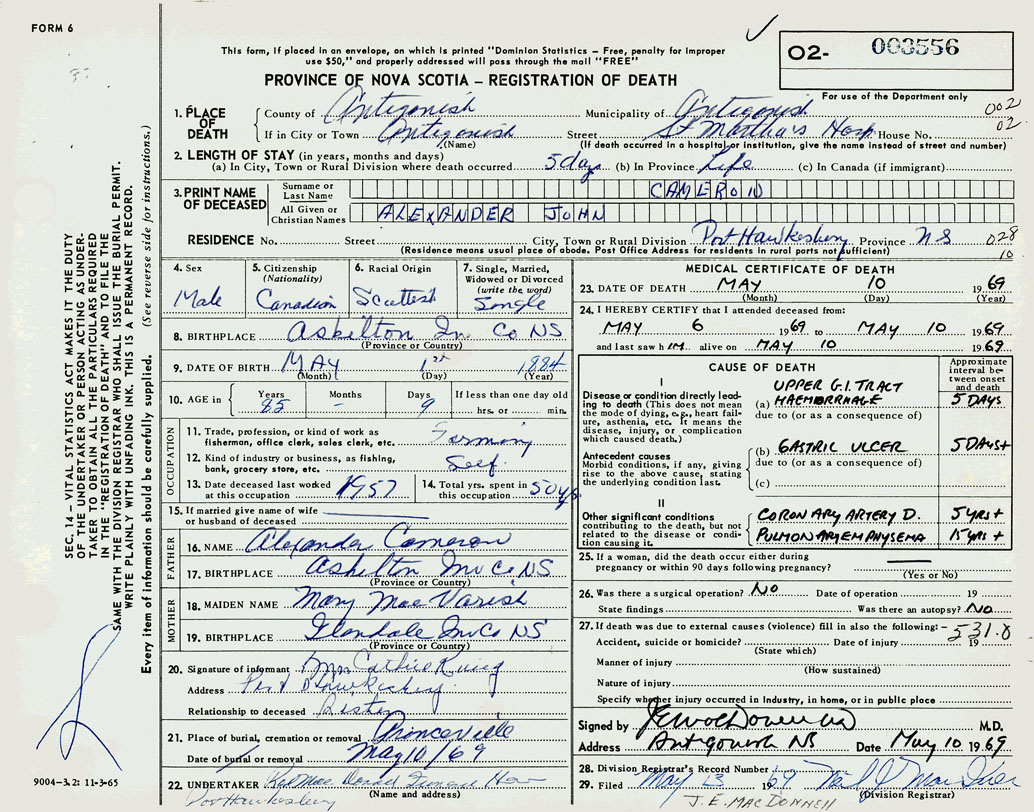 FORM 6
This form, if placed in an envelope, on which is printed "Dominion Statistics – Free, penalty for improper
use $50," and properly addressed will pass through the mail "FREE"
PROVINCE OF NOVA SCOTIA – REGISTRATION OF DEATH
02- 003556
For use of the Department only
1. PLACE OF DEATH
County of Antigonish Municipality of Antigonish 002
If in City or Town Antigonish Street St Martha's Hosp House No. 02
(Name) (If death occurred in a hospital or institution, give the name instead of street and number)
2. LENGTH OF STAY (in years, months and days)
(a) In City, Town or Rural Division where death occurred 5 days (b) In Province Life (c) In Canada (if immigrant)
3. PRINT NAME OF DECEASED
Surname or Last Name CAMERON
All Given or Christian Names ALEXANDER JOHN
RESIDENCE No. Street City, Town or Rural Division Port Hawkesbury Province NS 028
(Residence means usual place of abode. Post Office Address for residents in rural ports not sufficient) 10
4. Sex
Male
5. Citizenship
(Nationality)
Canadian
6. Racial Origin
Scottish
7. Single, Married,
Widowed or Divorced
(write the word)
Single
8. BIRTHPLACE Askilton Inv Co NS
(Province or Country)
9. DATE OF BIRTH MAY 1st 1884
(Month) (Day) (Year)
10. AGE in Years 85 Months – Days 9 If less than one day old
hrs. or min.
OCCUPATION
11. Trade, profession, or kind of work as
fisherman, office clerk, sales clerk, etc. Farming
12. Kind of industry or business, as fishing,
bank, grocery store, etc. Self
13. Date deceased last worked
at this occupation 1957
14. Total yrs. spent in
this occupation 50 yrs
15. If married give name of wife
or husband of deceased
FATHER
16. NAME Alexander Cameron
17. BIRTHPLACE Askilton Inv Co NS
(Province or Country)
MOTHER
18. MAIDEN NAME Mary Mac Varish
19. BIRTHPLACE Glendale Inv Co NS
(Province or Country)
20. Signature of informant Mrs Cathie
Address Port Hawkesbury
Relationship to deceased Sister
21. Place of burial, cremation or removal Princeville
Date of burial or removal May 10/69
22. UNDERTAKER Mac Donald Funeral Home
(Name and address)
Port Hawkesbury
MEDICAL CERTIFICATE OF DEATH
23. DATE OF DEATH MAY 10 1969
(Month) (Day) (Year)
24. I HEREBY CERTIFY that I attended deceased from:
MAY 6 1969 to MAY 10 1969
and last saw h IM alive on MAY 10 1969
CAUSE OF DEATH
Approximate interval between onset and death
I
Disease or condition directly leading
to death (This does not mean
the mode of dying, e.g., heart failure,
asthenia, etc. It means the
disease, injury, or complication
which caused death.)
(a) UPPER G.I. TRACT HAEMORRHAGE 5 DAYS
due to (or as a consequence of)
Antecedent causes
Morbid conditions, if any, giving
rise to the above cause, stating
the underlying condition last.
(b) GASTRIC ULCER 5 DAYS+
due to (or as a consequence of)
(c)
II
Other significant conditions
contributing to the death, but not
related to the disease or condition
causing it.
CORONARY ARTERY D. 5 YRS+
PULMONARY EMPHYSEMA 15 YRS+
25. If a woman, did the death occur either during
pregnancy or within 90 days following pregnancy?
(Yes or No)
26. Was there a surgical operation? NO Date of operation 19
State findings Was there an autopsy? NO
27. If death was due to external causes (violence) fill in also the following: – 531.8
Accident, suicide or homicide? Date of injury 19
(State which)
Manner of injury
(How sustained)
Nature of injury
Specify whether injury occurred in Industry, in home, or in public place
Signed by M.D.
Address Antigonish NS Date May 10 1969
28. Division Registrar's Record Number
29. Filed May 13 1969
(Division Registrar)
J. E. MACDONNELL
SEC. 14 – VITAL STATISTICS ACT MAKES IT THE DUTY
OF THE UNDERTAKER OR PERSON ACTING AS UNDERTAKER
TO OBTAIN ALL THE PARTICULARS REQUIRED
IN THE "REGISTRATION OF DEATH" AND TO FILE THE
SAME WITH THE DIVISION REGISTRAR WHO SHALL ISSUE THE BURIAL PERMIT.
WRITE PLAINLY WITH UNFADING INK. THIS IS A PERMANENT RECORD.
Every item of information should be carefully supplied. (See reverse side for instructions.)
9004–3.2: 11-3-65